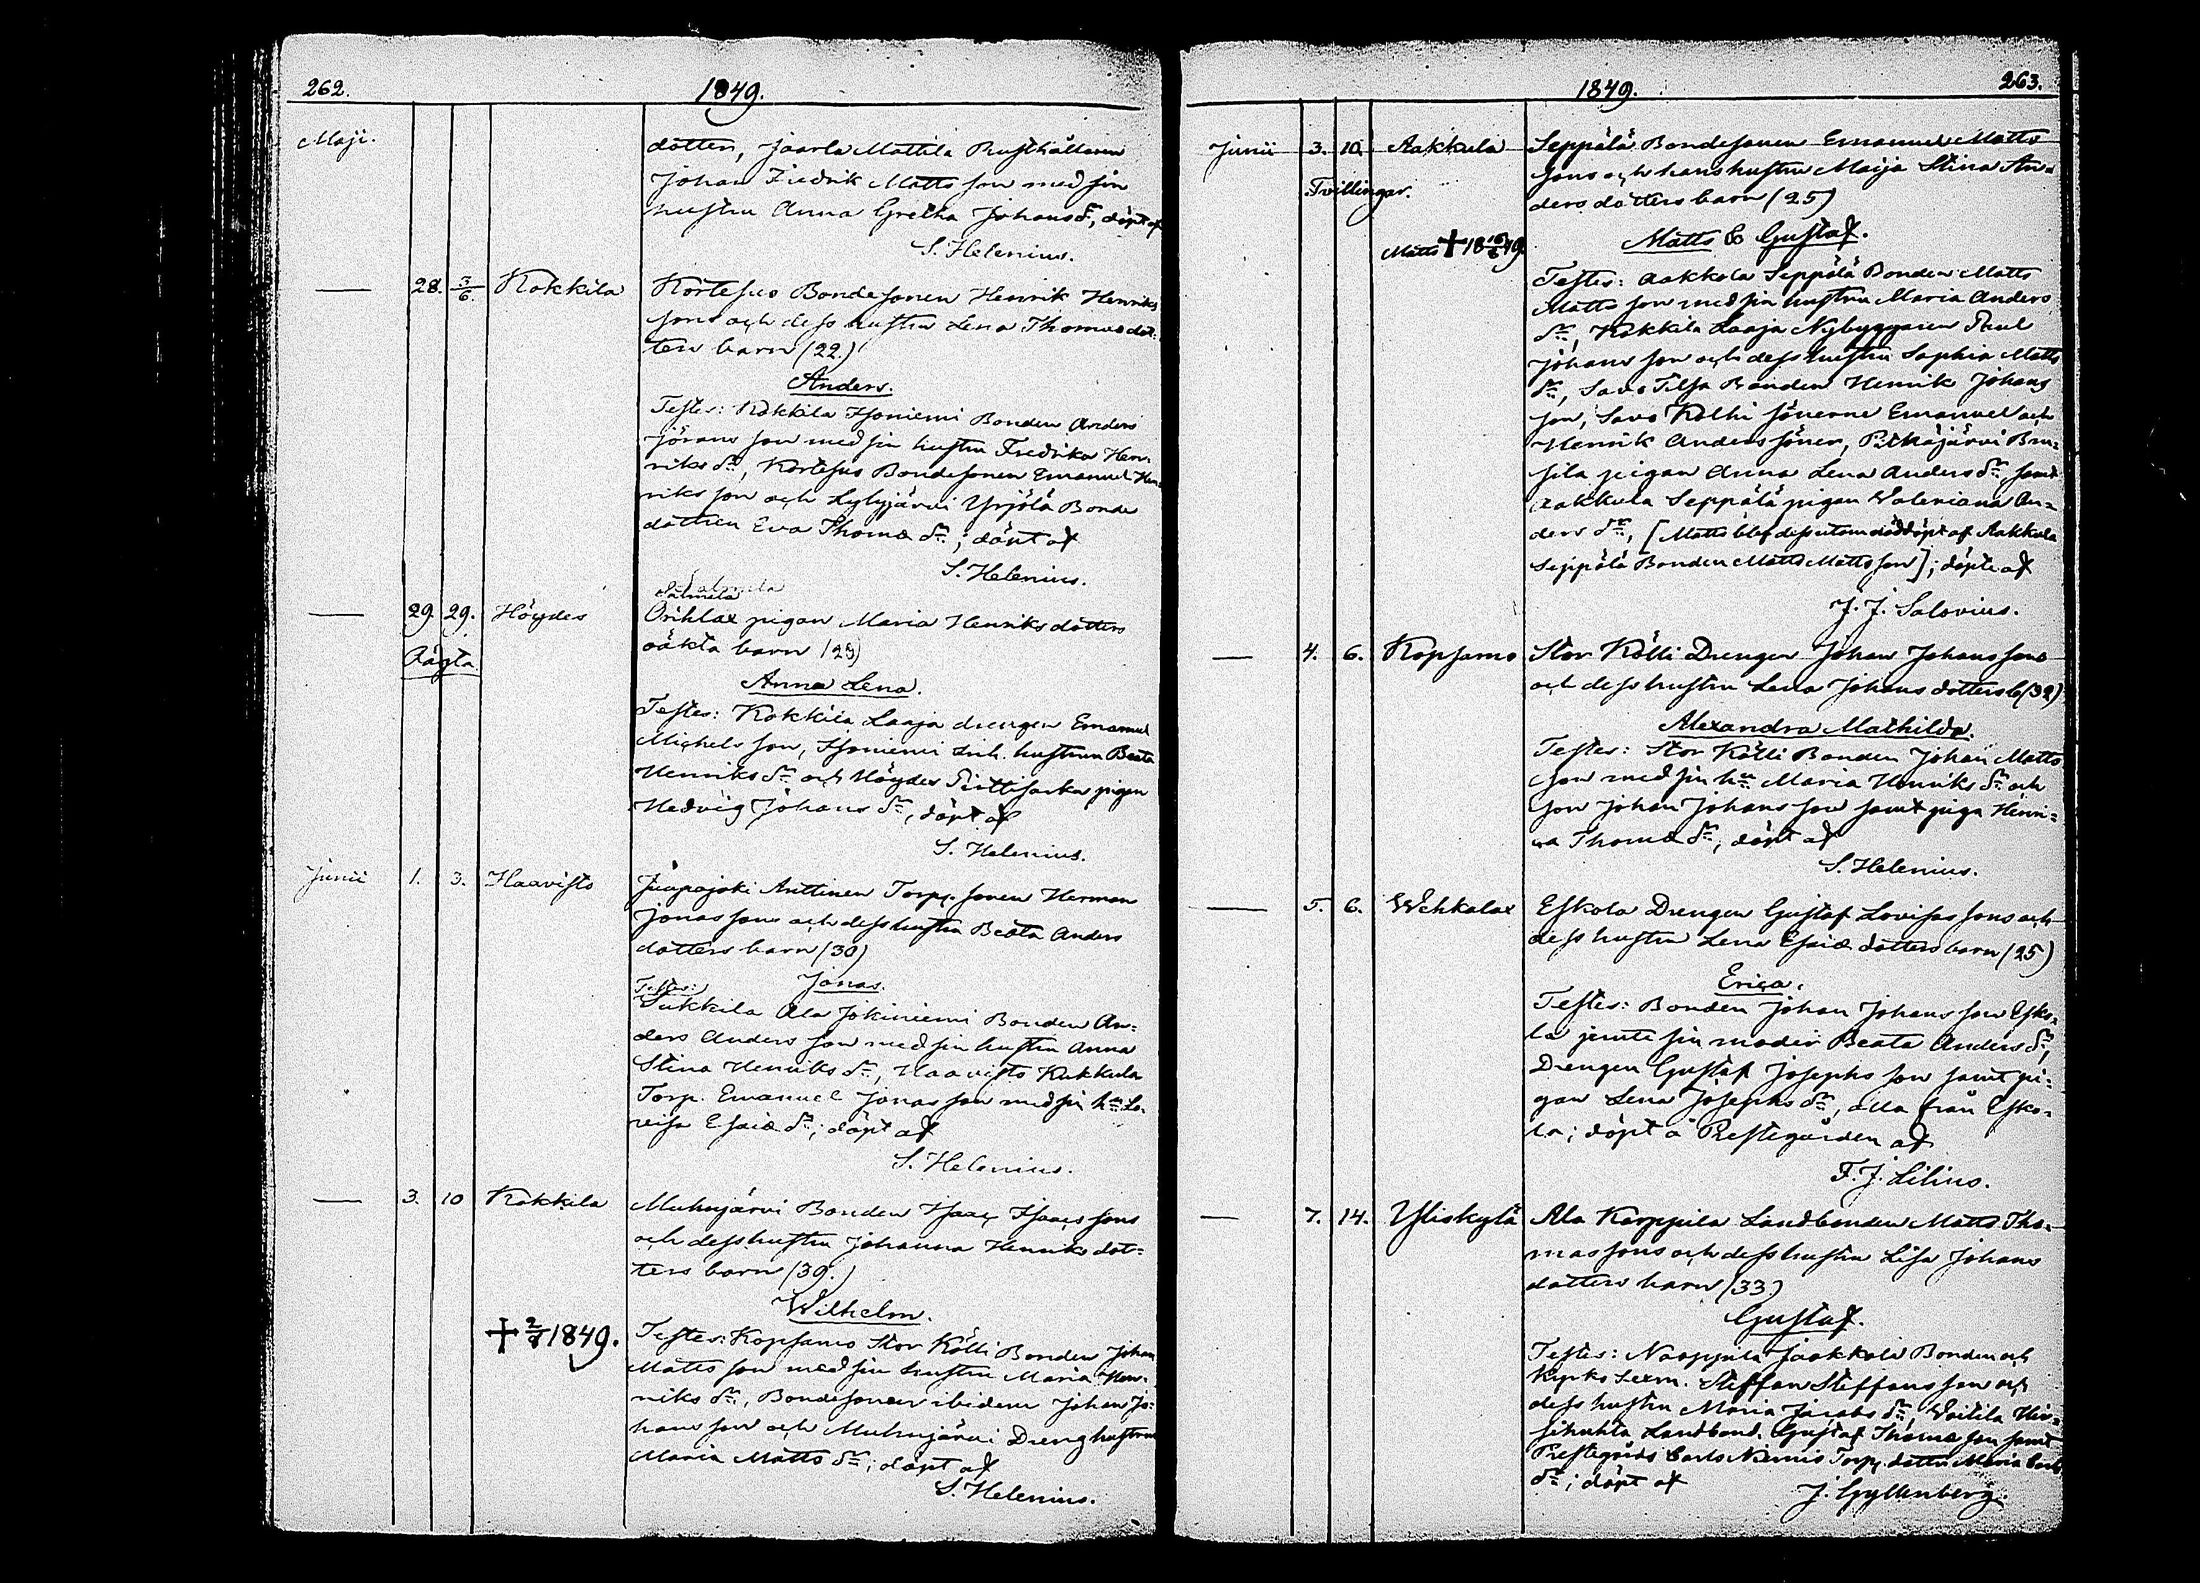 262.
1849.
Maji.
dotter, Jaarla Mattila Rusthållaren
Johan Fredrik Mattsson med sin
hustru Anna Gretha Johansdr, döpt af
S. Helenius.
— 28. 3/6. Kokkila Kortesuo Bondesonen Henrik Henriks
sons och dess hustru Lena Thomasdot-
ters barn (22.)
Anders.
Testes: Kokkila Isoniemi Bonden Anders
Jörans son med sin hustru Fredrika Hen-
riks dr, Kortesuo Bondesonen Emanuel Hen-
riks son och Lyhyjärvi Yrjölä Bonde
dottren Eva Thomæ dr; döpt af
S. Helenius.
Salmela
— 29. 29. Höydes pigan Maria Henriks dotters
Oägta. oäkta barn (29)
Anna Lena.
Testes: Kokkila Laaja drengen Emanuel
Michels son, Isoniemi Inh. hustrun Beata
Henriks dr och Höydes pigan
Hedvig Johans dr, döpt af
S. Helenius.
Junii 1. 3. Haavisto Juupajoki Anttinen Torp. sonen Herman
Jonas sons och dess hustru Beata Anders
dotters barn (30)
Jonas.
Testes:
Sukkila Ala Jokiniemi Bonden An-
ders Anders son med sin hustru Anna
Stina Henriks dr, Haavisto Kukkula
Torp. Emanuel Jonas son med sin hu Lo-
visa Esaiæ dr; döpt af
S. Helenius.
— 3. 10 Kokkila Muhujärvi Bonden Isaac Isaacs sons
och dess hustru Johanna Henriks dot-
ters barn (39.)
Wilhelm.
✝ 2/8 1849. Testes: Kopsamo Stor Kölli Bonden Johan
Matts son med sin hustru Maria Hen-
riks dr, Bondesonen ibidem Johan Jo-
hans son och Muhujärvi Drenghustrun
Maria Matts dr; döpt af
S. Helenius.
1849.
263.
Junii 3. 10. Aakkula Seppälä Bondesonen Emanuel Matts
Tvillingar. sons och hans hustru Maija Stina An-
ders dotters barn (25)
Matts & Gustaf.
Matts ✝ 18 49.
Testes: Aakkula Seppälä Bonden Matts
Matts son med sin hustru Maria Anders
dr, Kokkila Laaja Nybyggaren Paul
Johans son och dess hustru Sophia Matts
dr, Savo Tilsa Bonden Henrik Johans
son, Savo Kolhi sönerne Emanuel och
Henrik Anders söner, Pitkäjärvi
pigan Anna Lena Anders dr samt
Aakkula Seppälä pigan Valeriana An-
ders dr, [Matts blef dessutom nöddöpt af Aakkula
Seppälä Bonden Matts Matts son]; döpte af
J. J. Salovius.
— 4. 6. Kopsamo Stor Kölli Drengen Johan Johans sons
och dess hustru Lena Johans dotters b (32)
Alexandra Mathilda.
Testes: Stor Kölli Bonden Johan Matts
son med sin hu Maria Henriks dr och
son Johan Johans son samt piga Henri-
ca Thomæ dr; döpt af
S. Helenius.
— 5. 6. Wehkalax Eskola Drengen Gustaf Lovisas sons och
dess hustru Lena Esaiæ dotters barn (25)
Erica.
Testes: Bonden Johan Johans son Esko-
la jemte sin moder Beata Anders dr,
Drengen Gustaf Josephs son samt pi-
gan Lena Josephs dr, alla från Esko-
la; döpt å Prestegården af
F. J. Lilius.
— 7. 14. Yliskylä Ala Karppila Landbonden Matts Tho-
mas sons och dess hustru Lisa Johans
dotters barn (33)
Gustaf.
Testes: Naappila Jaakkola Bonden och
Kyrko Sexm. Steffan Steffans son och
dess hustru Maria Jacobs dr, Voitila Hir-
sihuhta Landbond. Gustaf Thomæ son samt
Prestegårds Torp. dottn Maria Carls
dr; döpt af
J. Gyllenberg.